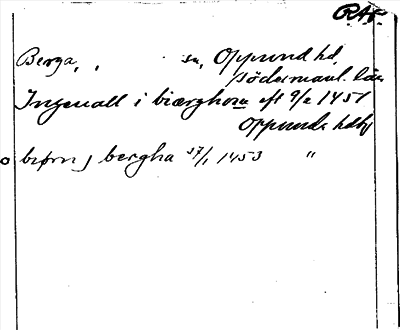 RAP.
Berga, , sn, Oppund hd,
Södermanl. län
Ingeuall i biærghom eft 9/2 1451
Oppunda hdbf
o biørn j bergha 17/1 1453 "